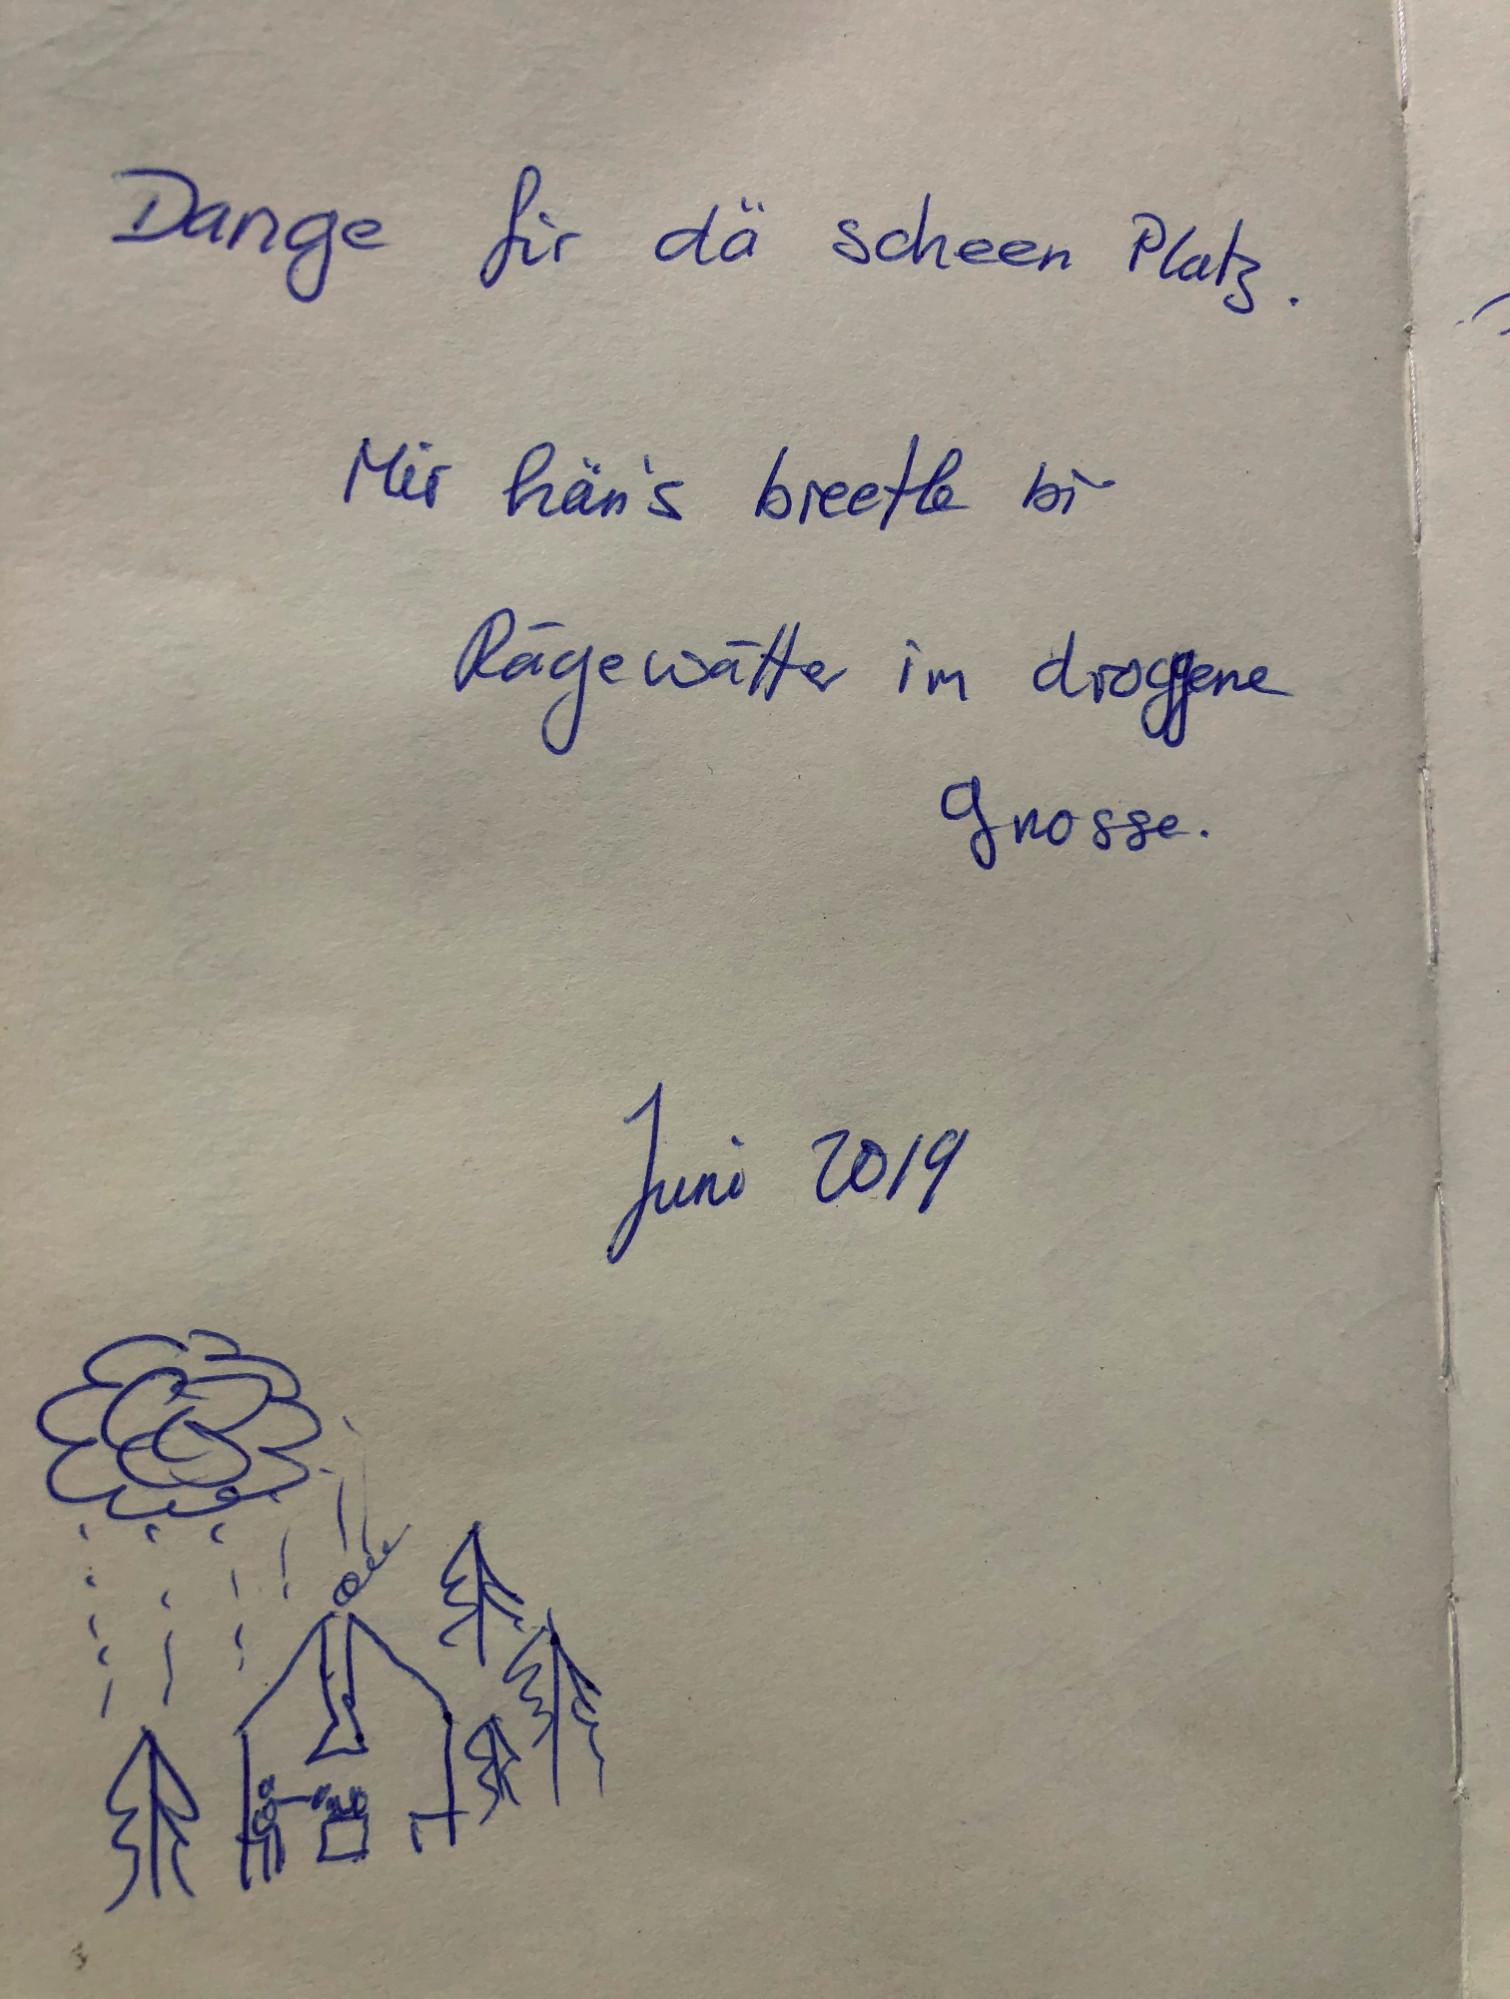 Dange fir dä scheen Platz.
Mir hän's breetle bi
Rägewätter im droggene
gnosse.
Juni 2019